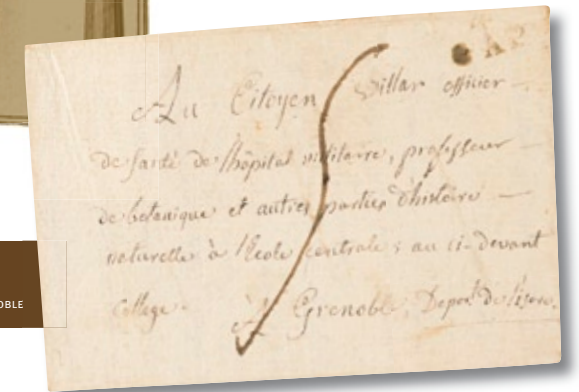 Au Citoyen Villar officier
de santé de l'hôpital militaire, professeur
de botanique et autres parties d'histoire
naturelle à l'Ecole centrale; au ci-devant
College.
À Grenoble, Depart. de l'Isere.
OBLE